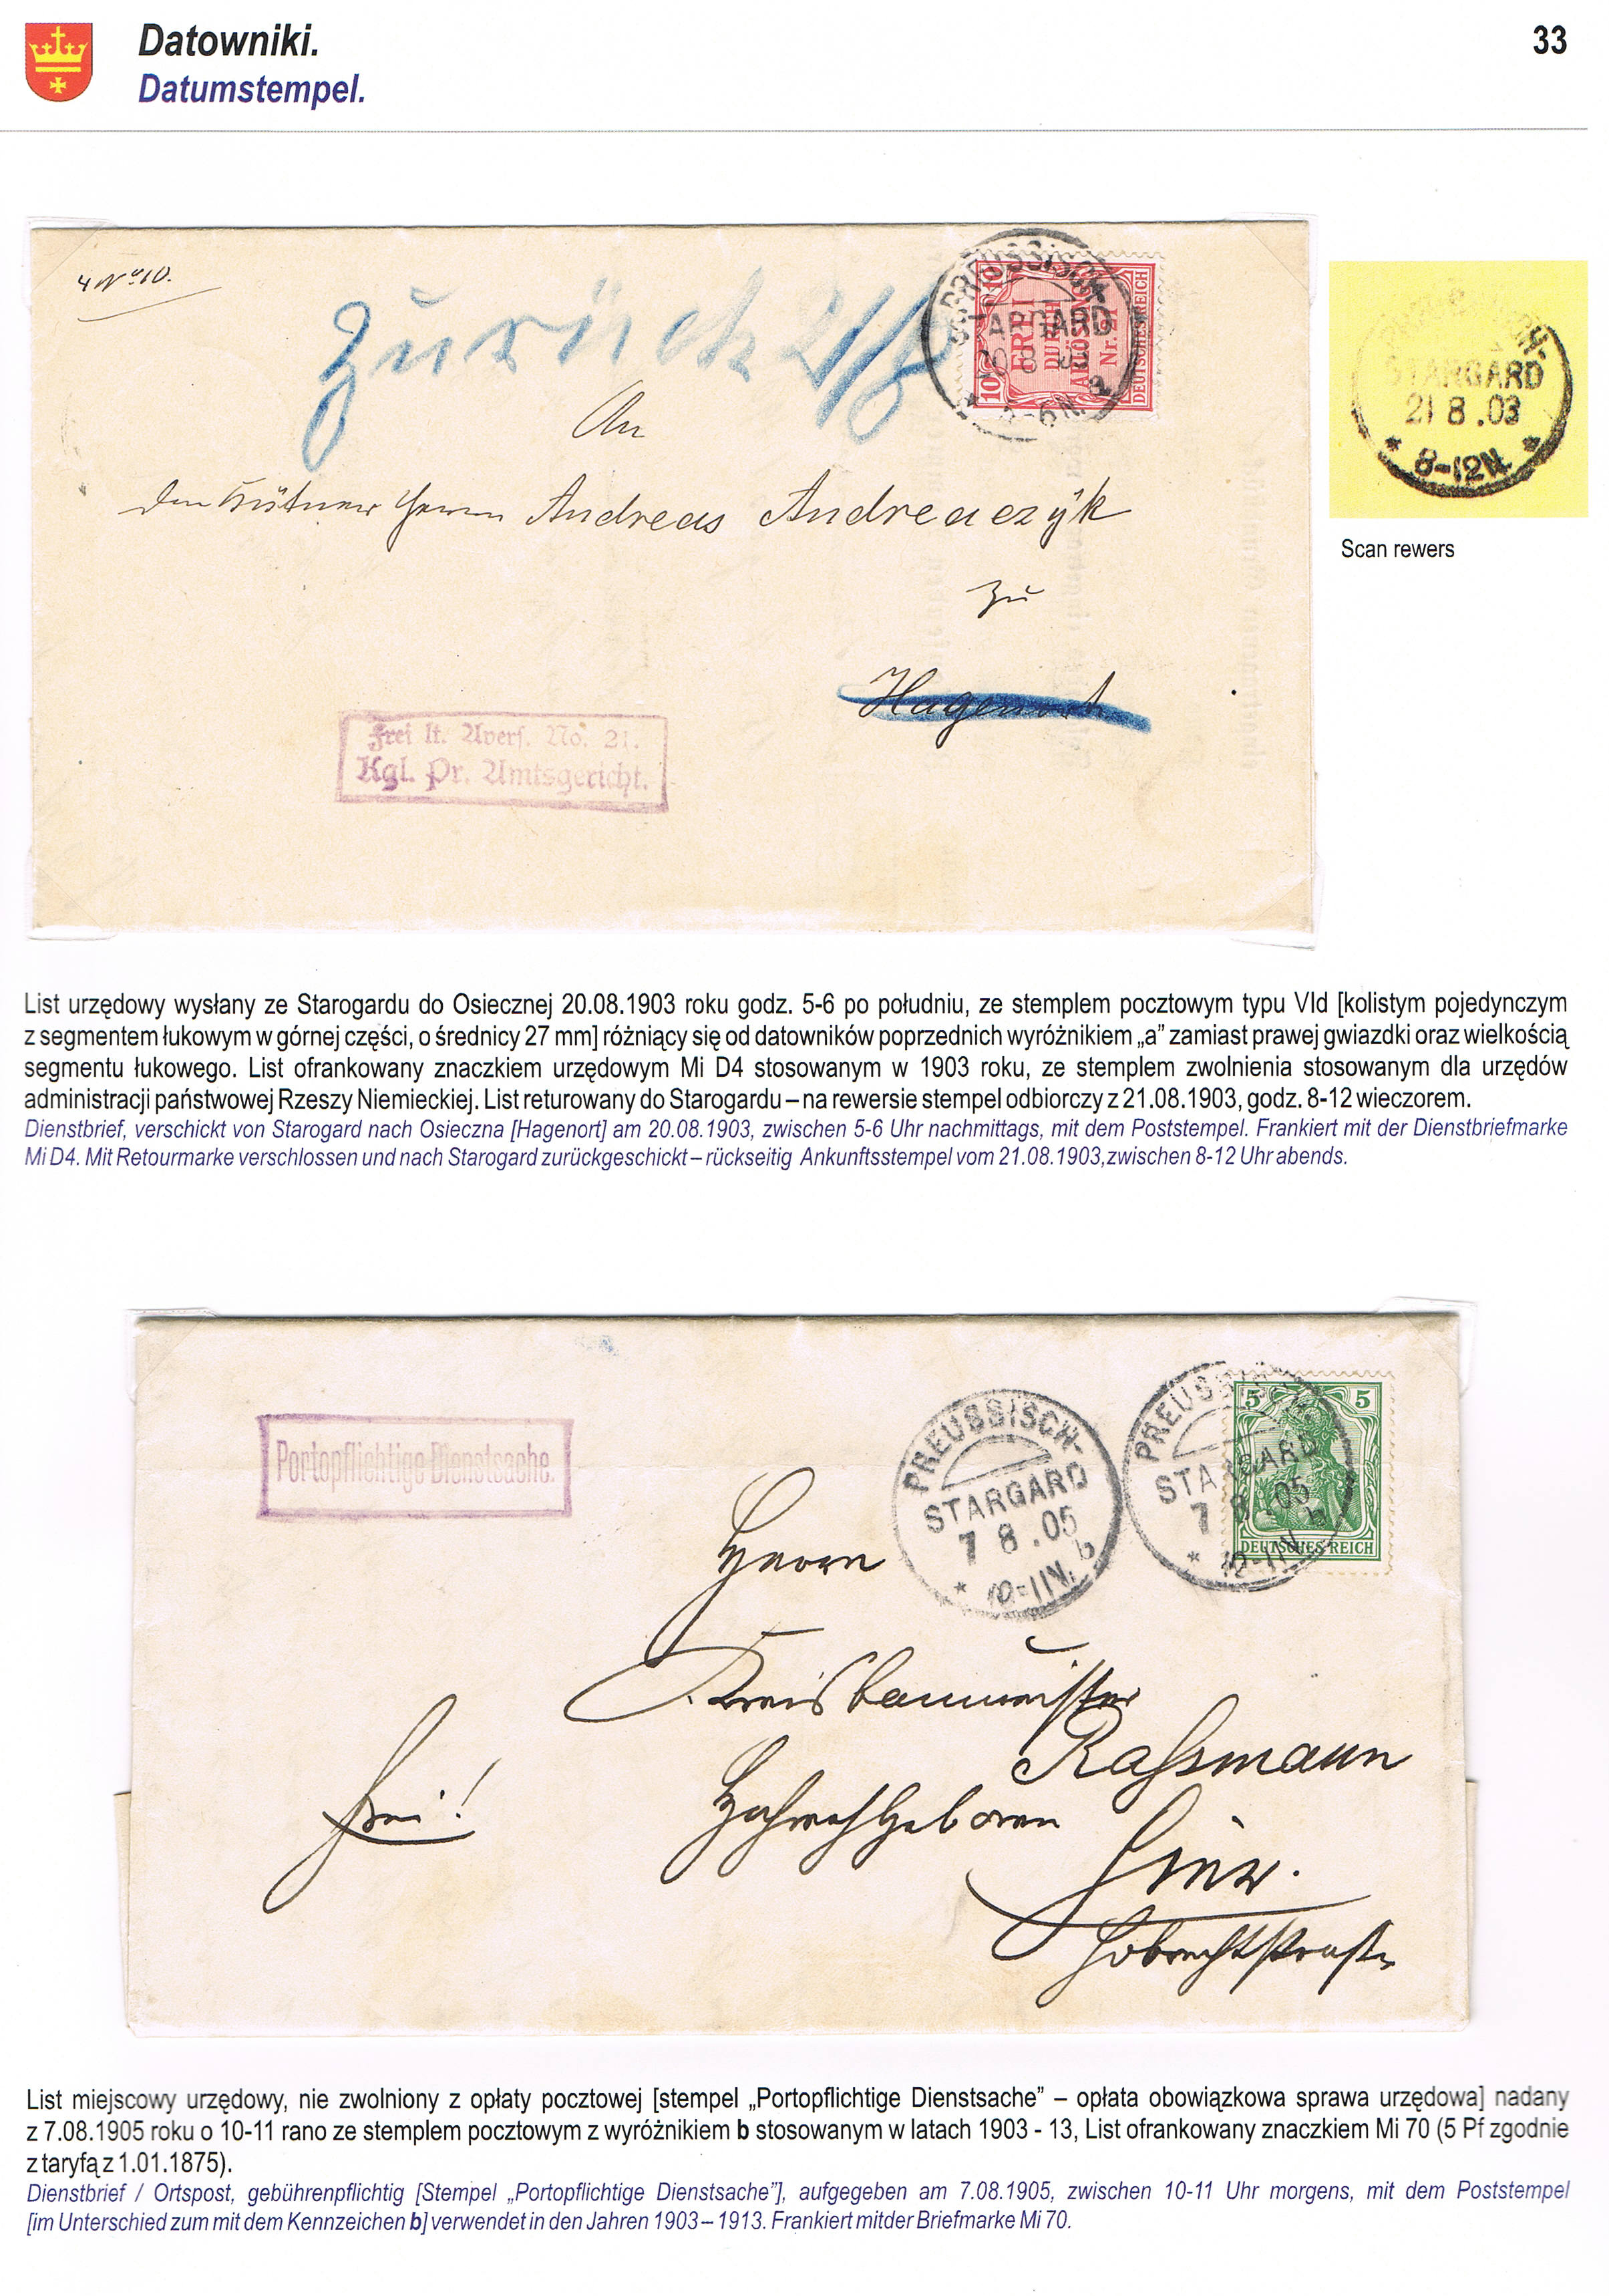 Datowniki.
33
Datumstempel.
4 No 10.
Zurück 21/8
PREUSSISCH-
STARGARD
20 8 03
* 5-6N. a
10 10
FREI
DURCH
ABLÖSUNG
Nr. 21
DEUTSCHES REICH
STARGARD
21 8 .03
* 8-12N. *
Scan rewers
An
den Herrn Andreas Andreaczyk
zu
Hagenort
Frei lt. Avers. No. 21.
Kgl. Pr. Amtsgericht.
List urzędowy wysłany ze Starogardu do Osiecznej 20.08.1903 roku godz. 5-6 po południu, ze stemplem pocztowym typu VId [kolistym pojedynczym
z segmentem łukowym w górnej części, o średnicy 27 mm] różniący się od datowników poprzednich wyróżnikiem „a” zamiast prawej gwiazdki oraz wielkością
segmentu łukowego. List ofrankowany znaczkiem urzędowym Mi D4 stosowanym w 1903 roku, ze stemplem zwolnienia stosowanym dla urzędów
administracji państwowej Rzeszy Niemieckiej. List returowany do Starogardu – na rewersie stempel odbiorczy z 21.08.1903, godz. 8-12 wieczorem.
Dienstbrief, verschickt von Starogard nach Osieczna [Hagenort] am 20.08.1903, zwischen 5-6 Uhr nachmittags, mit dem Poststempel. Frankiert mit der Dienstbriefmarke
Mi D4. Mit Retourmarke verschlossen und nach Starogard zurückgeschickt – rückseitig Ankunftsstempel vom 21.08.1903,zwischen 8-12 Uhr abends.
Portopflichtige Dienstsache.
PREUSSISCH-
STARGARD
7 8 .05
* 10-11N. b
PREUSSISCH-
STARGARD
7 8 .05
* 10-11N. b
5 5
DEUTSCHES REICH
Herrn
Kreisbaumeister
Raßmann
frei!
Hochwohlgeboren
Hier.
Hobrechtstraße
List miejscowy urzędowy, nie zwolniony z opłaty pocztowej [stempel „Portopflichtige Dienstsache” – opłata obowiązkowa sprawa urzędowa] nadany
z 7.08.1905 roku o 10-11 rano ze stemplem pocztowym z wyróżnikiem b stosowanym w latach 1903 - 13, List ofrankowany znaczkiem Mi 70 (5 Pf zgodnie
z taryfą z 1.01.1875).
Dienstbrief / Ortspost, gebührenpflichtig [Stempel „Portopflichtige Dienstsache”], aufgegeben am 7.08.1905, zwischen 10-11 Uhr morgens, mit dem Poststempel
[im Unterschied zum mit dem Kennzeichen b] verwendet in den Jahren 1903 – 1913. Frankiert mitder Briefmarke Mi 70.